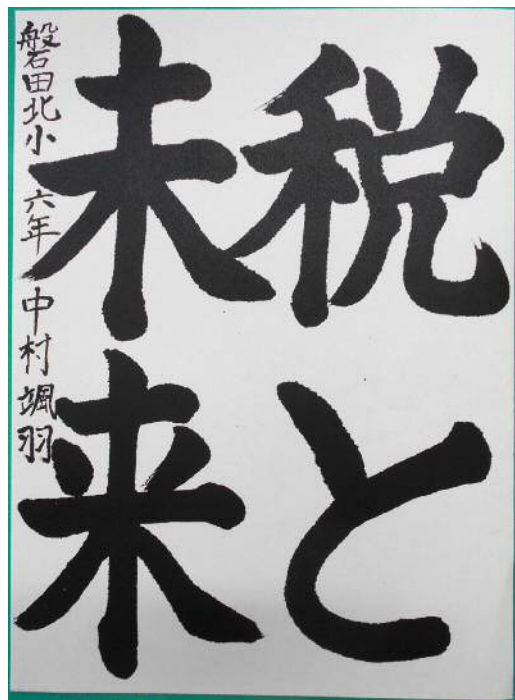 税と
未来
磐田北小 六年 中村颯羽